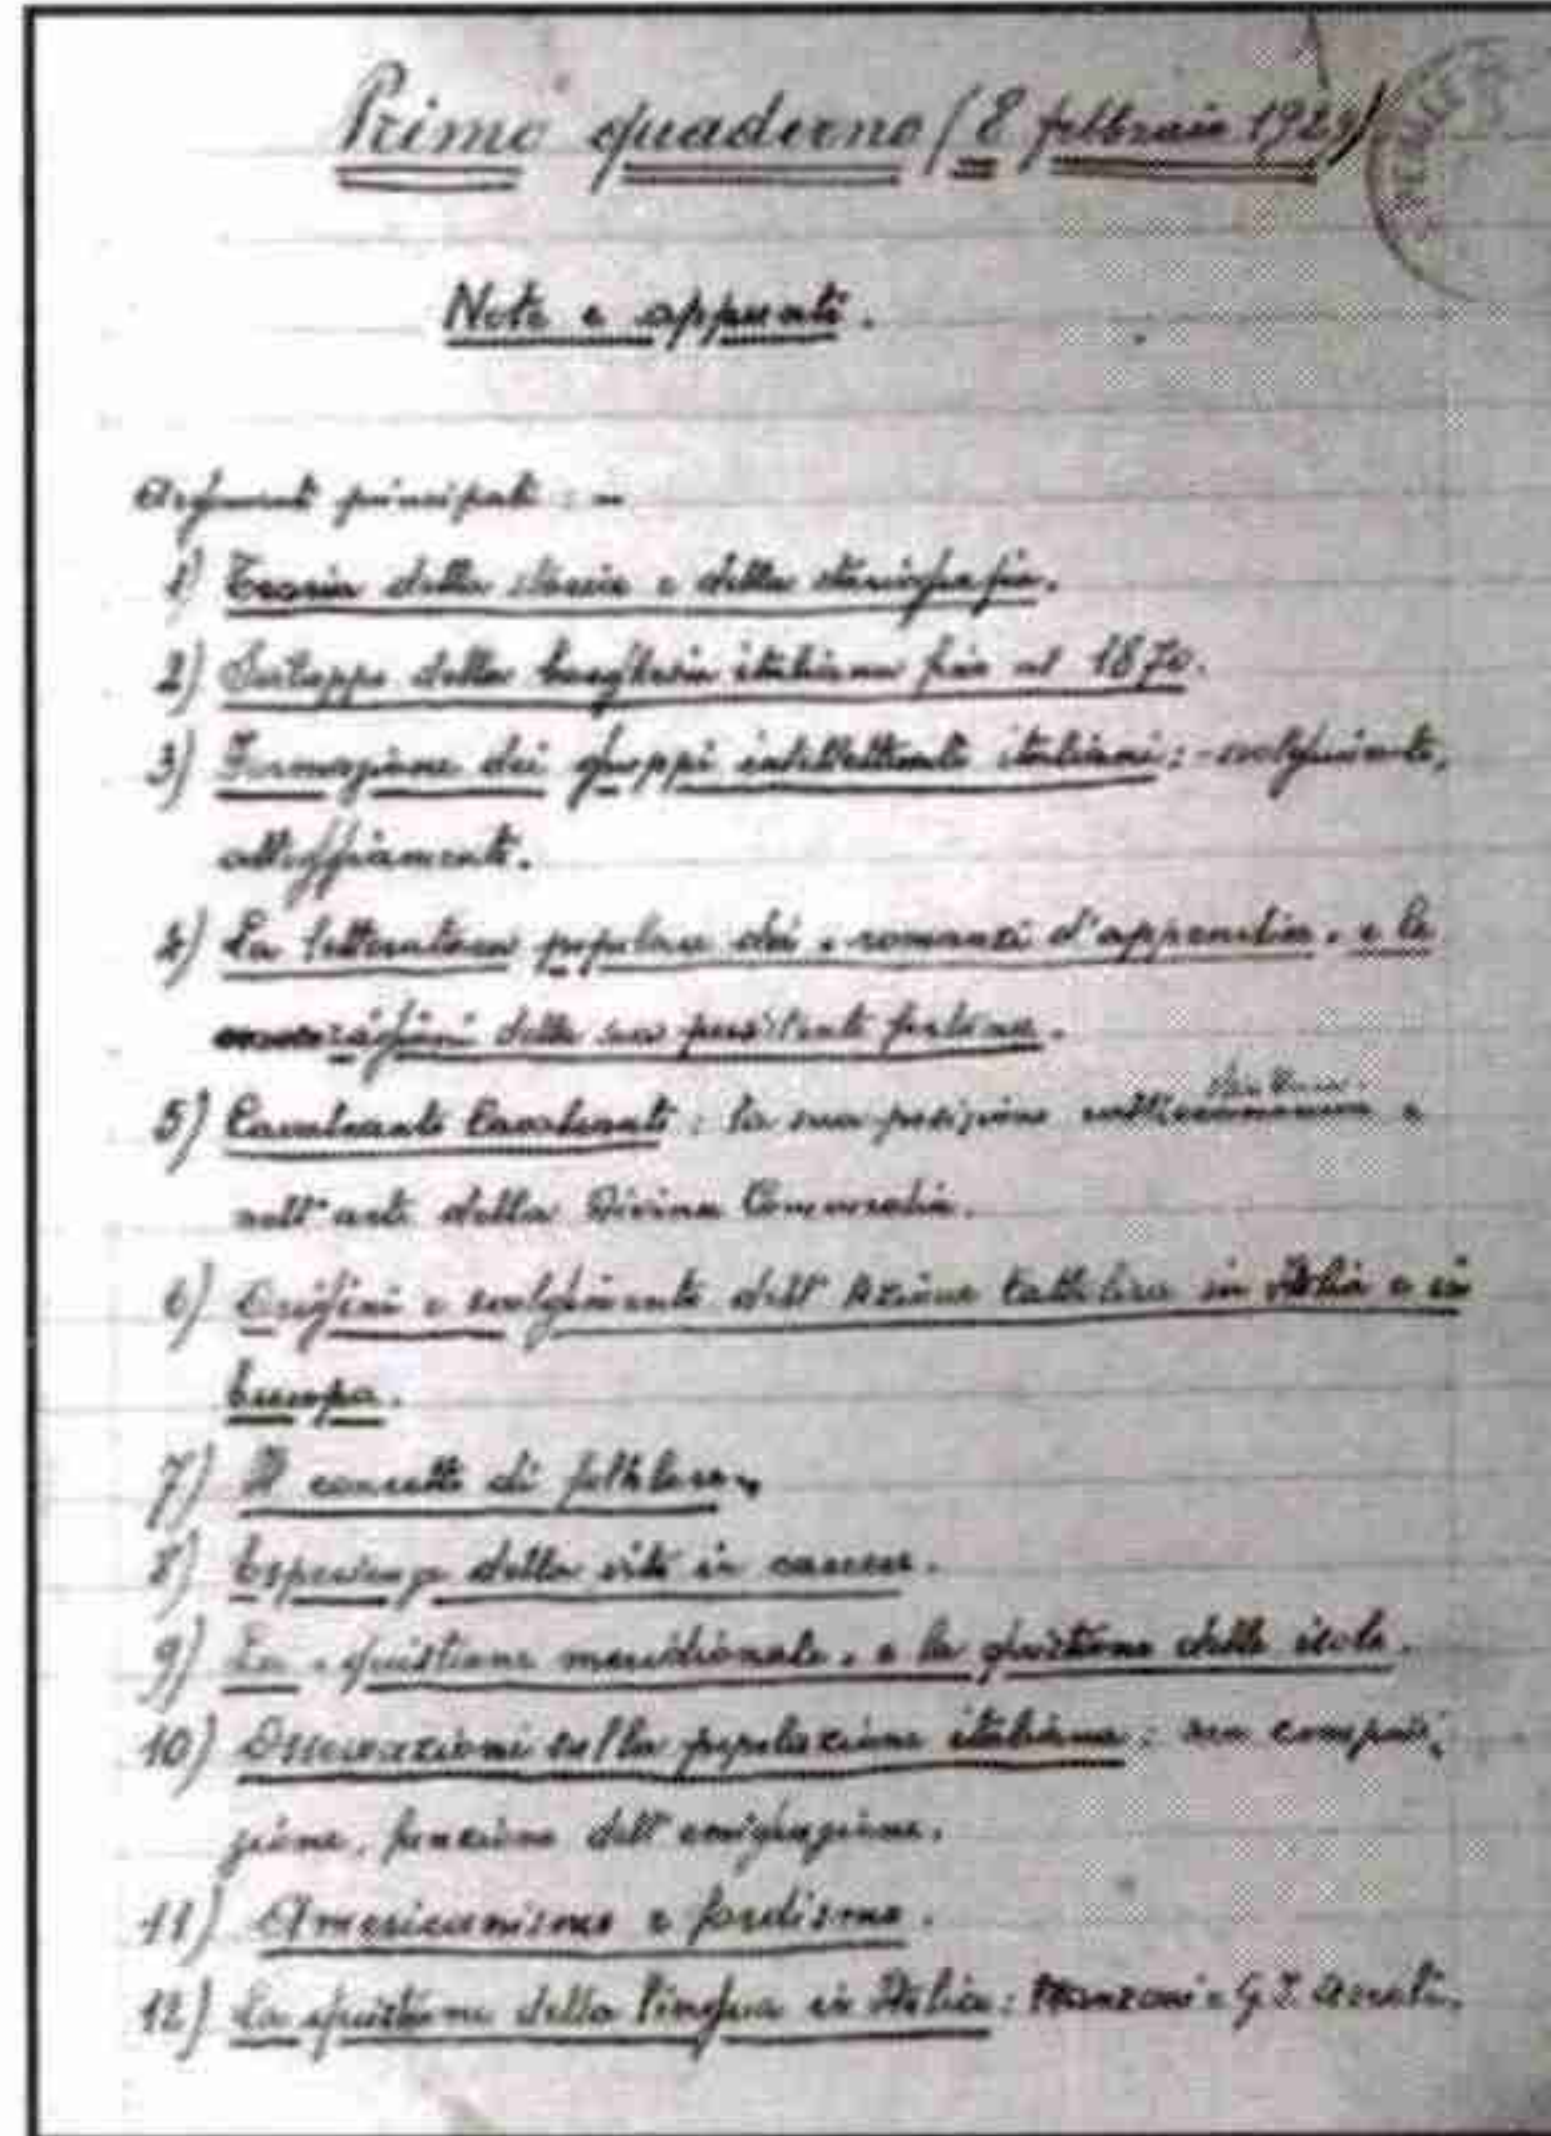 Primo quaderno (8 febbraio 1929)
Note e appunti.
Argomenti principali: –
1) Teoria della storia e della storiografia.
2) Sviluppo della borghesia italiana fino al 1870.
3) Formazione dei gruppi intellettuali italiani: – svolgimento,
atteggiamenti.
4) La letteratura popolare dei «romanzi d'appendice» e le
ragioni della sua persistente fortuna.
5) Cavalcante Cavalcanti: la sua posizione nella struttura e
nell'arte della Divina Commedia.
6) Origini e svolgimento dell'Azione Cattolica in Italia e in
Europa.
7) Il concetto di folklore.
8) Esperienze della vita in carcere.
9) La «quistione meridionale» e la quistione delle isole.
10) Osservazioni sulla popolazione italiana: sua composi-
zione, funzione dell'emigrazione.
11) Americanismo e fordismo.
12) La quistione della lingua in Italia: Manzoni e G. I. Ascoli.